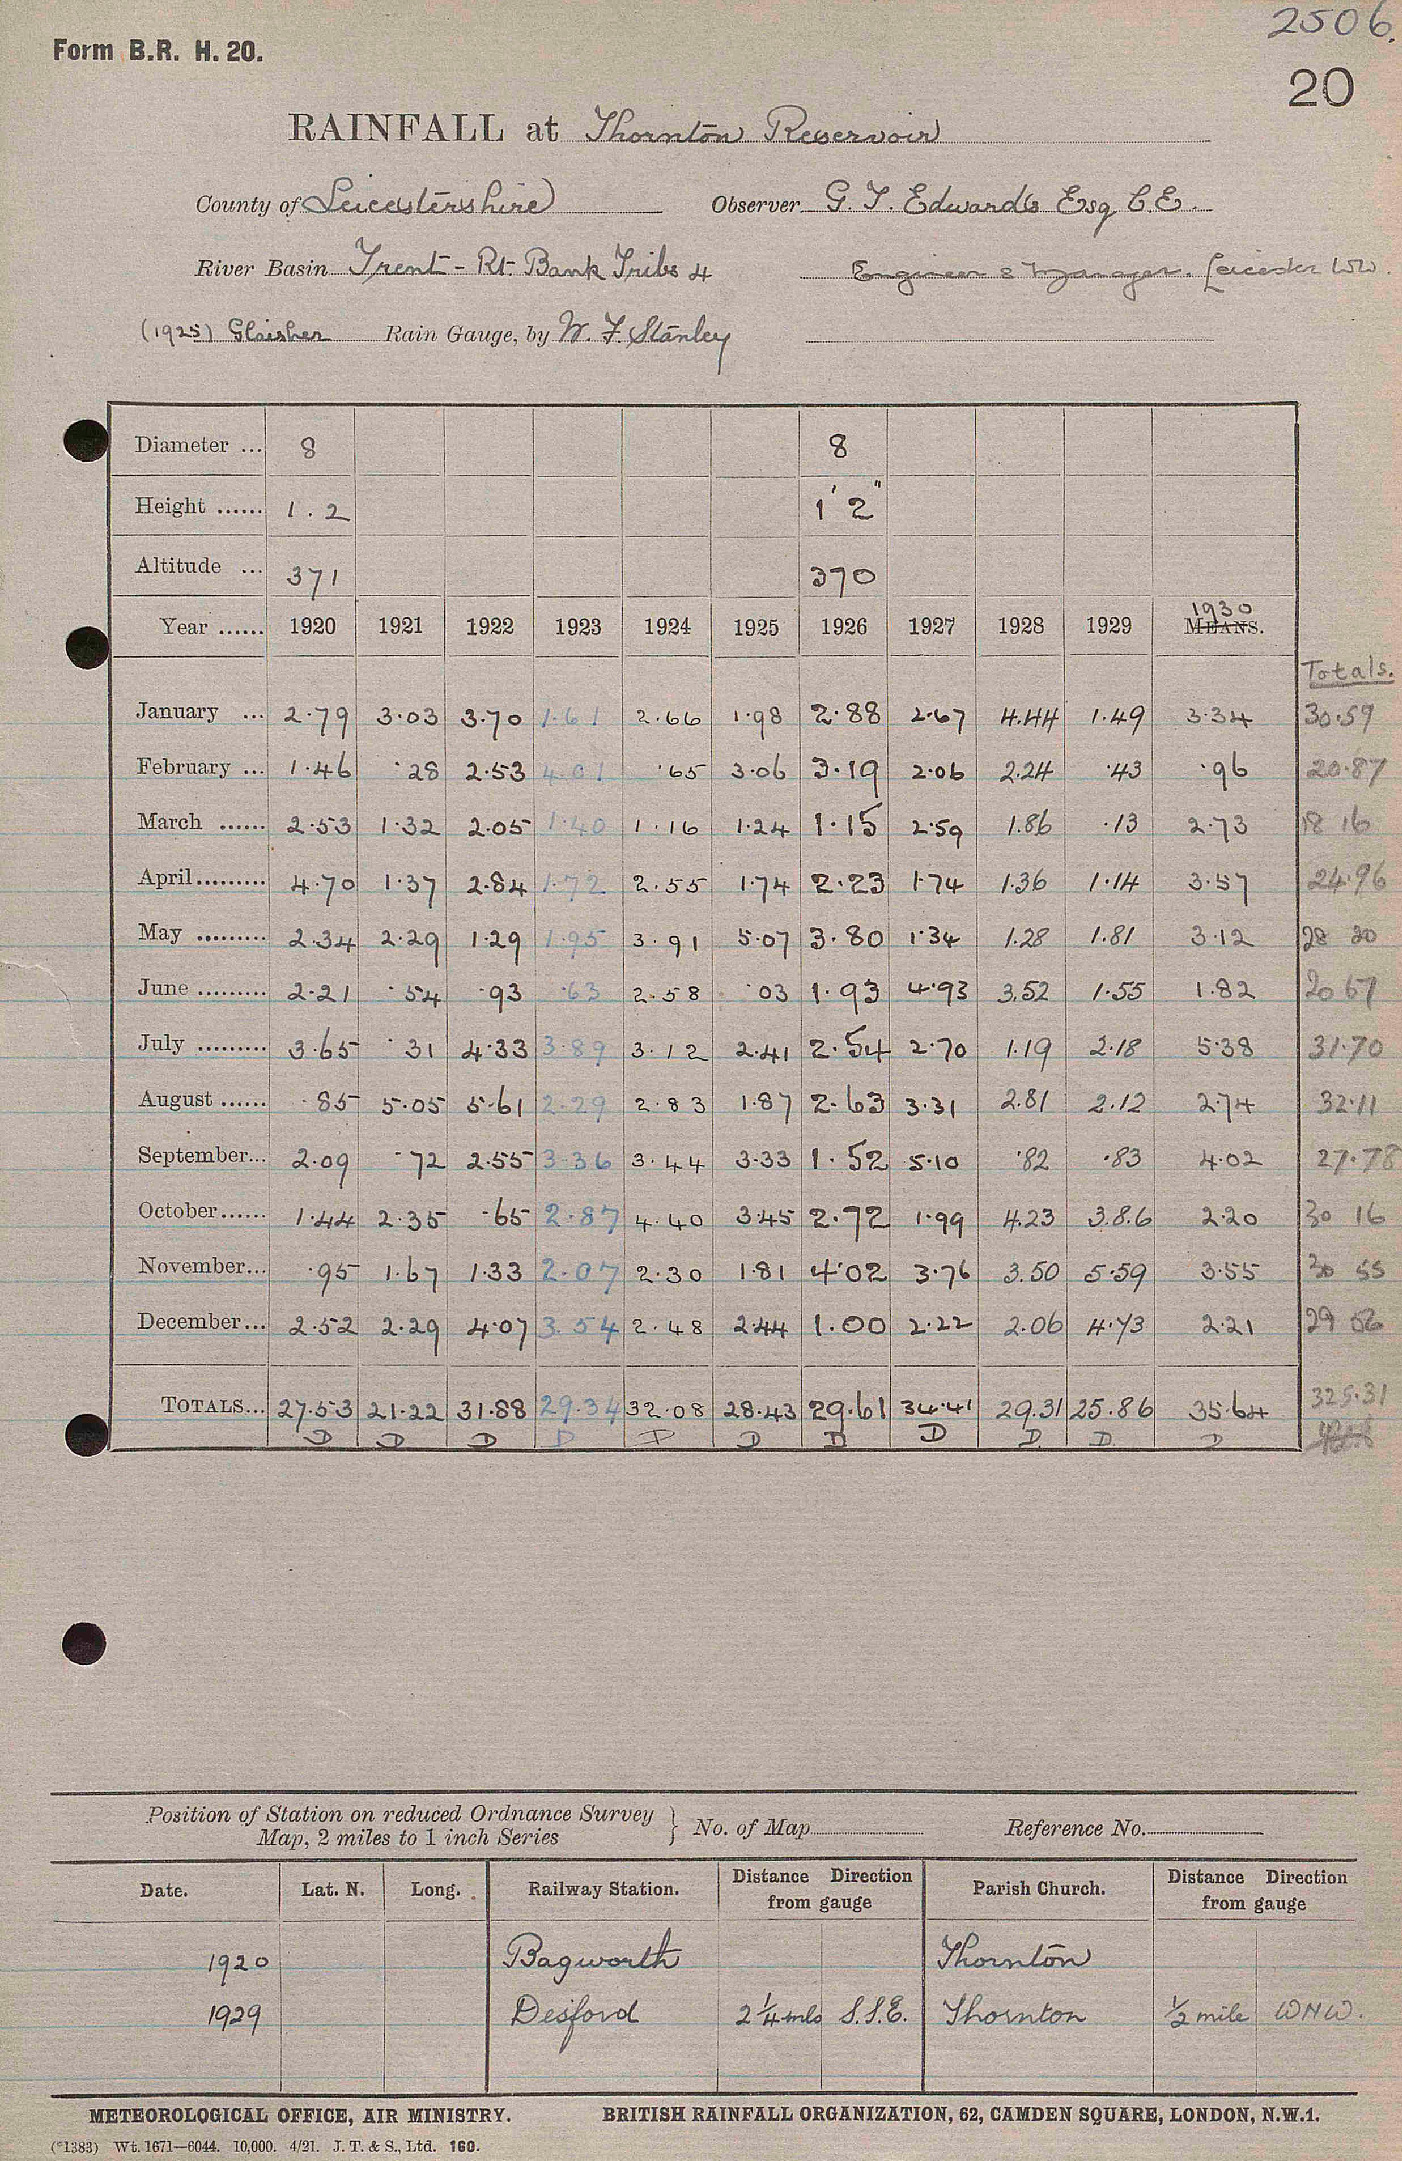 2506.
Form B.R. H. 20.
20
RAINFALL at Thornton Reservoir
County of Leicestershire Observer G. T. Edwards Esq C.E.
River Basin Trent - Rt. Bank Tribs 4 Engineer & Manager. Leicester WW.
(1925) Glaisher Rain Gauge, by W. F. Stanley
Diameter ... 8 8
Height ...... 1.2 1' 2"
Altitude ... 371 370
1930
Year ...... 1920 1921 1922 1923 1924 1925 1926 1927 1928 1929 MEANS.
Totals.
January ... 2.79 3.03 3.70 1.61 2.66 1.98 2.88 2.67 4.44 1.49 3.34 30.59
February ... 1.46 .28 2.53 4.01 .65 3.06 3.19 2.06 2.24 .43 .96 20.87
March ...... 2.53 1.32 2.05 1.40 1.16 1.24 1.15 2.59 1.86 .13 2.73 18 16
April......... 4.70 1.37 2.84 1.72 2.55 1.74 2.23 1.74 1.36 1.14 3.57 24.96
May ......... 2.34 2.29 1.29 1.95 3.91 5.07 3.80 1.34 1.28 1.81 3.12 28 20
June ......... 2.21 .54 .93 .63 2.58 .03 1.93 4.93 3.52 1.55 1.82 20 67
July ......... 3.65 .31 4.33 3.89 3.12 2.41 2.54 2.70 1.19 2.18 5.38 31.70
August ...... .85 5.05 5.61 2.29 2.83 1.87 2.63 3.31 2.81 2.12 2.74 32.11
September... 2.09 .72 2.55 3.36 3.44 3.33 1.52 5.10 .82 .83 4.02 27.78
October...... 1.44 2.35 .65 2.87 4.40 3.45 2.72 1.99 4.23 3.86 2.20 30 16
November... .95 1.67 1.33 2.07 2.30 1.81 4.02 3.76 3.50 5.59 3.55 30 55
December... 2.52 2.29 4.07 3.54 2.48 2.44 1.00 2.22 2.06 4.73 2.21 29 56
TOTALS... 27.53 21.22 31.88 29.34 32.08 28.43 29.61 34.41 29.31 25.86 35.64 325.31
D D D D D D D D D D D
Position of Station on reduced Ordnance Survey
Map, 2 miles to 1 inch Series } No. of Map Reference No.
Date. Lat. N. Long. Railway Station. Distance Direction from gauge Parish Church. Distance Direction from gauge
1920 Bagworth Thornton
1929 Desford 2 1/4 mls S.S.E. Thornton 1/2 mile WNW.
METEOROLOGICAL OFFICE, AIR MINISTRY. BRITISH RAINFALL ORGANIZATION, 62, CAMDEN SQUARE, LONDON, N.W.1.
(*1383) Wt. 1671—6044. 10,000. 4/21. J. T. & S., Ltd. 160.